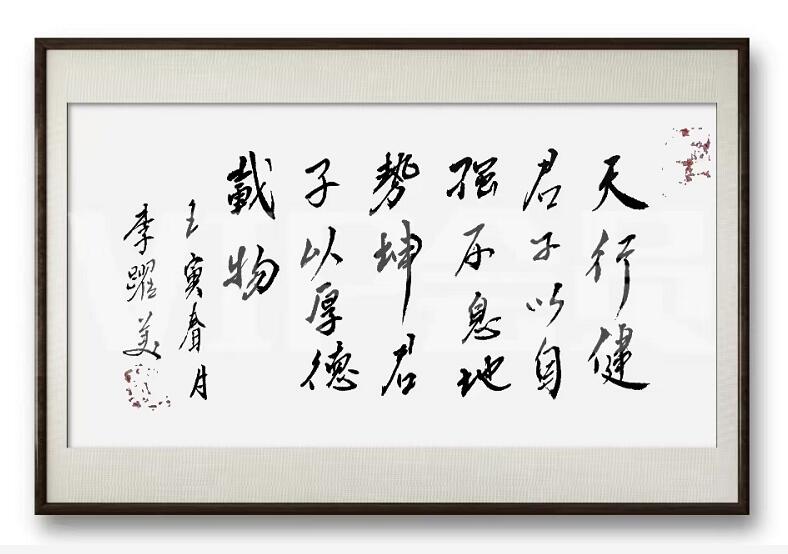 天行健
君子以自
强不息地
勢坤君
子以厚德
載物
壬寅春月
李躍美